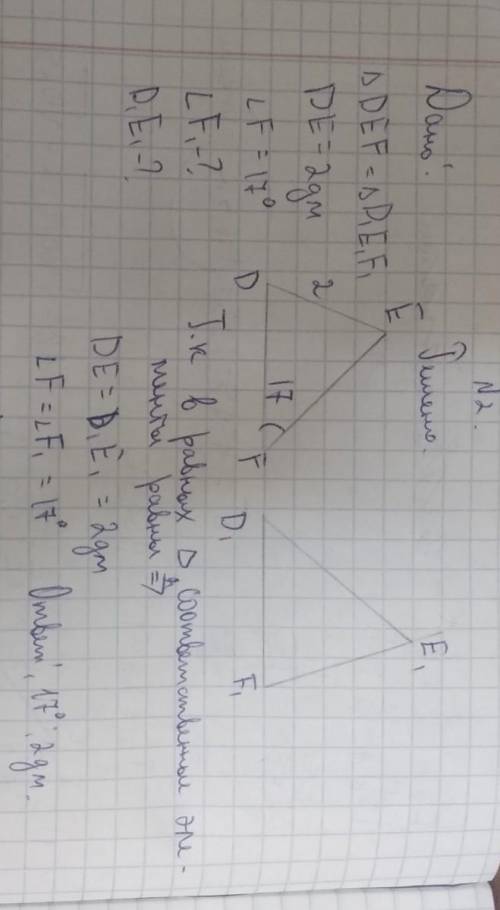 N2.
Дано:
Решение.
△DEF = △D₁E₁F₁
DE = 2дм
∠F = 17°
∠F₁ - ?
D₁E₁ - ?
E
2
D
17
F
E₁
D₁
F₁
Т.к в равных △ соответственные эле-
менты равны ⇒
DE = D₁E₁ = 2дм
∠F = ∠F₁ = 17°
Ответ: 17°; 2дм.